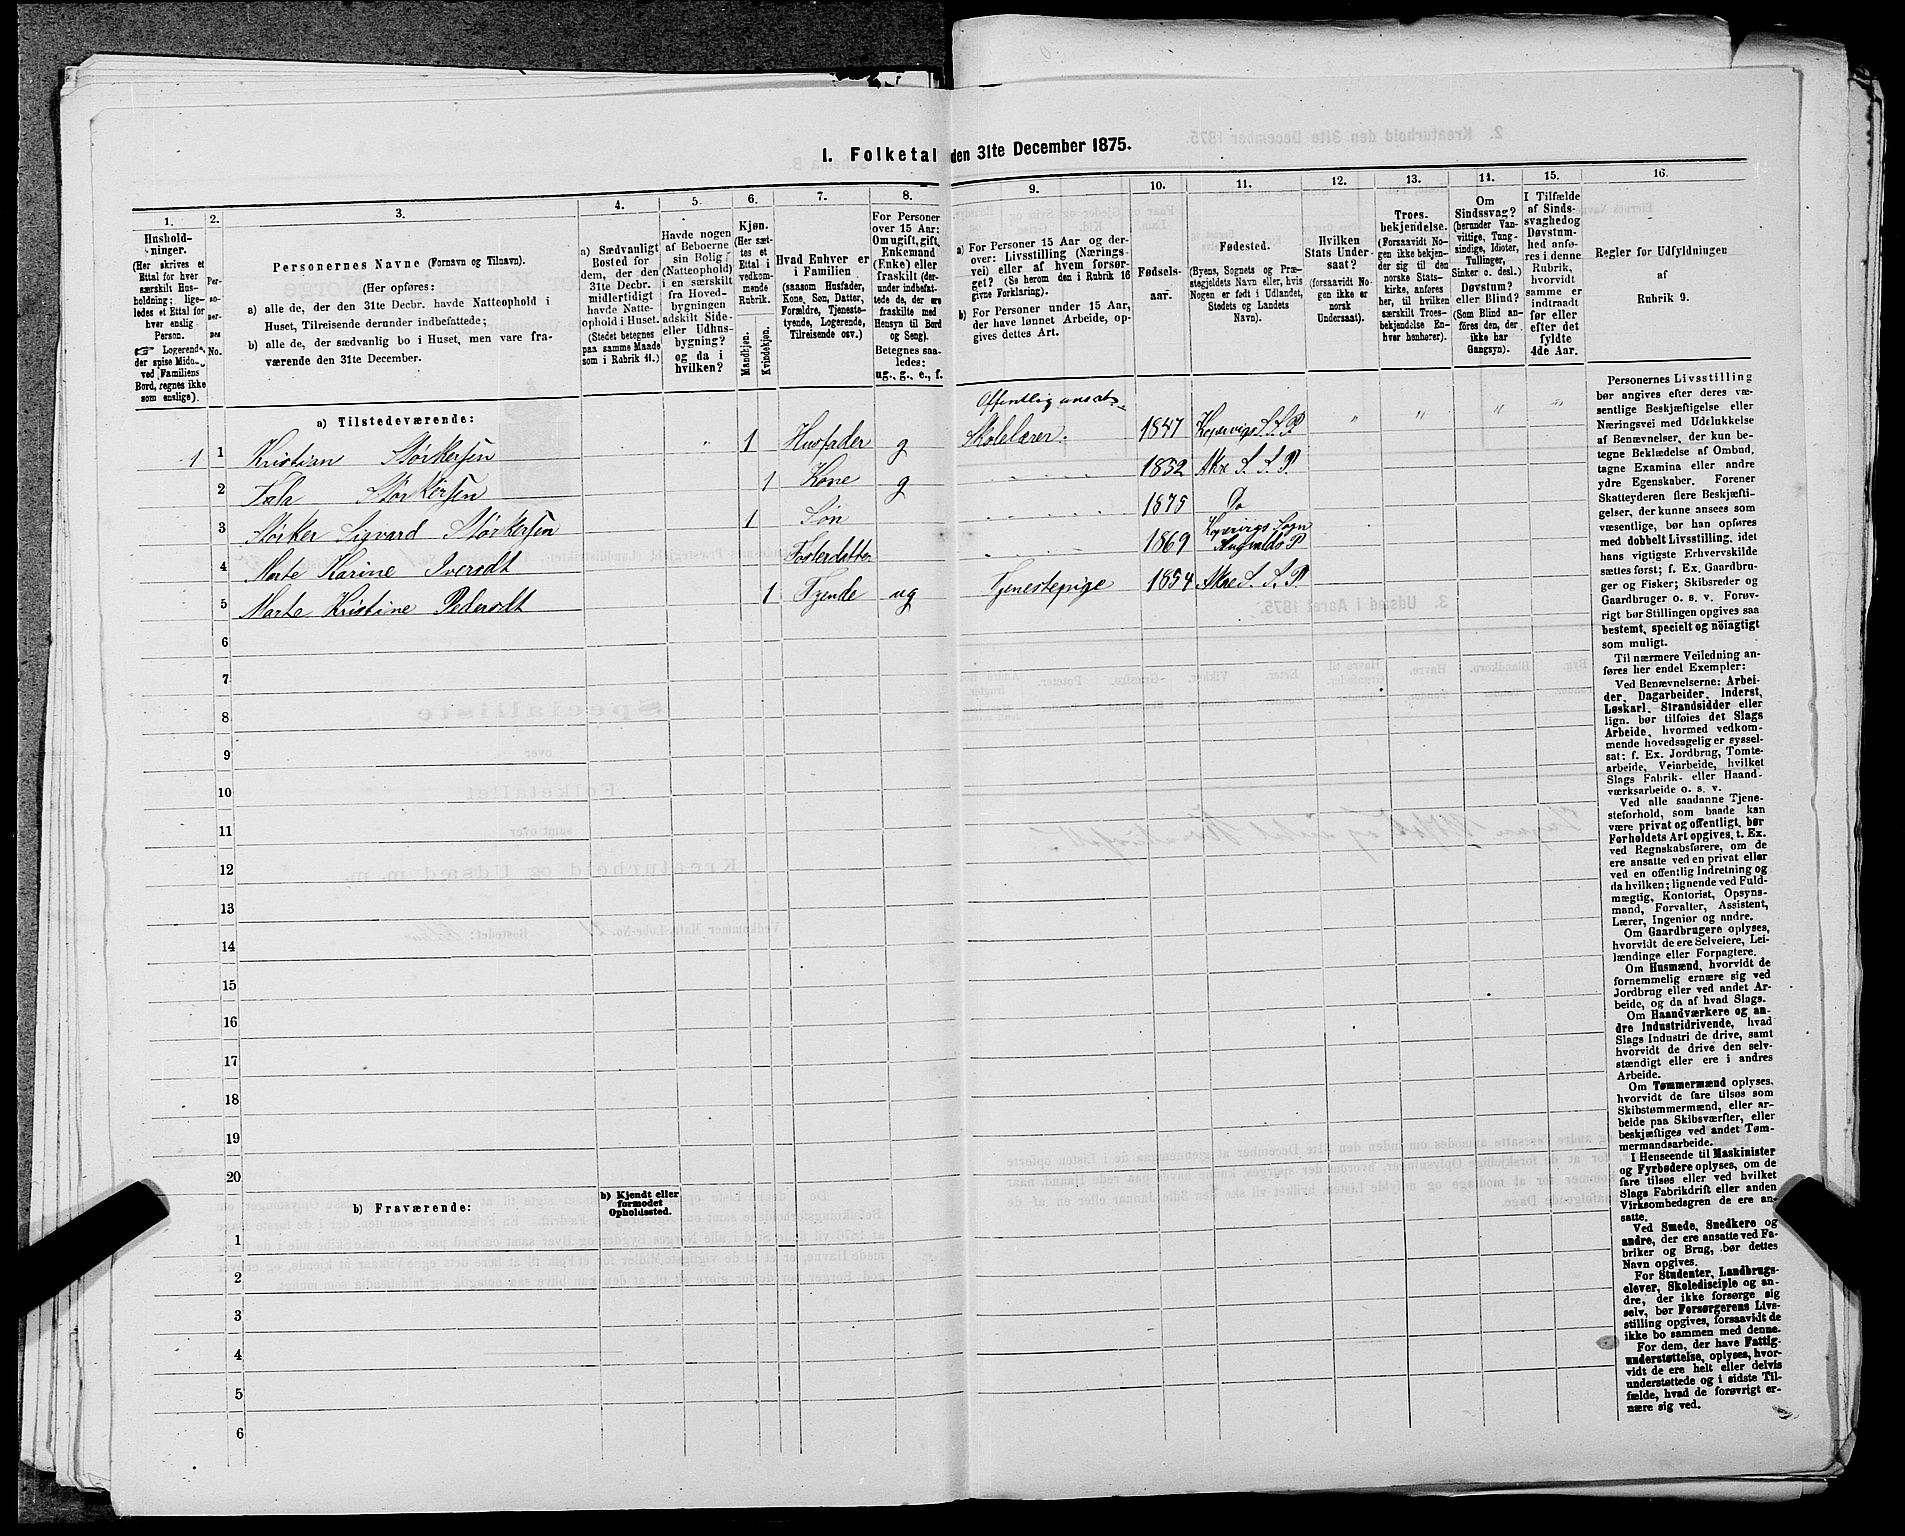 1. Folketal den 31te December 1875.
1.
Hushold-
ninger.
(Her skrives et
Ettal for hver
særskilt Hus-
holdning; lige-
ledes et Ettal for
hver enslig
Person.
☞ Logerende,
der spise Middag
ved Familiens
Bord, regnes ikke
som enslige).
2.
Per-
so-
ner-
nes
No.
3.
Personernes Navne (Fornavn og Tilnavn).
(Her opføres:
a) alle de, der den 31te Decbr. havde Natteophold i
Huset, Tilreisende derunder indbefattede;
b) alle de, der sædvanlig bo i Huset, men vare fra-
værende den 31te December.
4.
a) Sædvanligt
Bosted for
dem, der den
31te Decbr.
midlertidigt
havde Natte-
ophold i Huset.
(Stedet betegnes
paa samme Maade
som i Rubrik 11.)
5.
Havde nogen
af Beboerne
sin Bolig
(Natteophold)
i en særskilt
fra Hoved-
bygningen
adskilt Side-
eller Udhus-
bygning?
og da i
hvilken?
6.
Kjøn.
(Her sæt-
tes et
Ettal i
vedkom-
mende
Rubrik.
Mandkjøn.
Kvindekjøn.
7.
Hvad Enhver er
i Familien
(saasom Husfader,
Kone, Søn, Datter,
Forældre, Tjeneste-
tyende, Logerende,
Tilreisende osv.)
8.
For Personer
over 15 Aar:
Om ugift, gift,
Enkemand
(Enke) eller
fraskilt (der-
under indbefat-
tede de, der ere
fraskilte med
Hensyn til Bord
og Seng).
Betegnes saa-
ledes:
ug., g., e., f.
9.
a) For Personer 15 Aar og der-
over: Livsstilling (Nærings-
vei) eller af hvem forsør-
get? (Se herom den i Rubrik 16
givne Forklaring).
b) For Personer under 15 Aar,
der have lønnet Arbeide, op-
gives dettes Art.
10.
Fødsels-
aar.
11.
Fødested.
(Byens, Sognets og Præ-
stegjeldets Navn eller, hvis
Nogen er født i Udlandet,
Stedets og Landets
Navn).
12.
Hvilken
Stats Under-
saat?
(forsaavidt No-
gen ikke er
norsk
Undersaat).
13.
Troes-
bekjendelse.
(Forsaavidt No-
gen ikke bekjen-
der sig til den
norske Stats-
kirke, anføres
her, til hvilken
særskilt Troes-
bekjendelse En-
hver henhører).
14.
Om
Sindssvag?
(herunder Van-
vittige, Tung-
sindige, Idioter,
Tullinger,
Sinker o. desl.)
Døvstum?
eller Blind?
(Som Blind an-
føres den, der
ikke har
Gangsyn).
15.
I Tilfælde
af Sinds-
svaghed og
Døvstum-
hed anfø-
res i denne
Rubrik,
hvorvidt
samme er
indtraadt
før eller
efter det
fyldte
4de Aar.
16.
Regler for Udfyldningen
af
Rubrik 9.
a) Tilstedeværende:
1 1 Kristian Størkersen " 1 Husfader g Offentlig ansat Skolelærer. 1847 Kopervigs S. S. P " " " "
2 Tala Størkersen 1 Kone g 1852 Akre S. S. P
3 Størker Sigvard Størkersen 1 Søn 1875 Do
4 Marte Karine Iversdt Fosterdatter 1869 Kopervigs Sogn Augvalds P
5 Marte Kristine Pedersdt 1 Tyende ug Tjenestepige 1854 Akre S. S. P
6
7
8
9
10
11
12
13
14
15
16
17
18
19
20
b) Fraværende:
b) Kjendt eller
formodet
Opholdssted.
1
2
3
4
5
6
Personernes Livsstilling
bør angives efter deres væ-
sentlige Beskjæftigelse eller
Næringsvei med Udelukkelse
af Benævnelser, der kun be-
tegne Beklædelse af Ombud,
tagne Examina eller andre
ydre Egenskaber. Forener
Skatteyderen flere Beskjæfti-
gelser, der kunne ansees som
væsentlige, bør han opføres
med dobbelt Livsstilling, idet
hans vigtigste Erhvervskilde
sættes først; f. Ex. Gaardbru-
ger og Fisker; Skibsreder og
Gaardbruger o. s. v. Forøv-
rigt bør Stillingen opgives saa
bestemt, specielt og nöiagtigt
som muligt.
Til nærmere Veiledning an-
føres her endel Exempler:
Ved Benævnelserne: Arbei-
der, Dagarbeider, Inderst,
Løskarl, Strandsidder eller
lign. bør tilføies det Slags
Arbeide, hvormed vedkom-
mende hovedsagelig er syssel-
sat: f. Ex. Jordbrug, Tomte-
arbeide, Veiarbeide, hvilket
Slags Fabrik- eller Haand-
værksarbeide o. s. v.
Ved alle saadanne Tjene-
steforhold, som baade kan
være privat og offentligt, bør
Forholdets Art opgives, t. Ex.
ved Regnskabsførere, om de
ere ansatte ved en privat eller
ved en offentlig Indretning og
da hvilken; lignende ved Fuld-
mægtig, Kontorist, Opsyns-
mand, Forvalter, Assistent,
Lærer, Ingeniør og andre.
Om Gaardbrugere oplyses,
hvorvidt de ere Selveiere, Lei-
lændinge eller Forpagtere.
Om Husmænd, hvorvidt de
fornemmelig ernære sig ved
Jordbrug eller ved andet Ar-
beide, og da af hvad Slags.
Om Haandværkere og an-
dre Industridrivende, hvad
Slags Industri de drive, samt
hvorvidt de drive den selv-
stændigt eller ere i andres
Arbeide.
Om Tømmermænd oplyses,
hvorvidt de fare tilsøs som
Skibstømmermænd, eller ar-
beide paa Skibsværfter, eller
beskjæftiges ved andet Tøm-
mermandsarbeide.
I Henseende til Maskinister
og Fyrbødere oplyses, om de
fare tilsøs eller ved hvilket
Slags Fabrikdrift eller anden
Virksomhedsgren de ere an-
satte.
Ved Smede, Snedkere og
andre, der ere ansatte ved Fa-
briker og Brug, bør dettes
Navn opgives.
For Studenter, Landbrugs-
elever, Skoledisciple og an-
dre, der ikke forsørge sig
selv, bør Forsørgerens Livs-
stilling opgives, forsaavidt de
ikke bo sammen med denne.
For dem, der have Fattig-
understøttelse, oplyses, hvor-
vidt de ere helt eller delvis
understøttede og i sidste Til-
fælde, hvad de forøvrigt er-
nære sig ved.